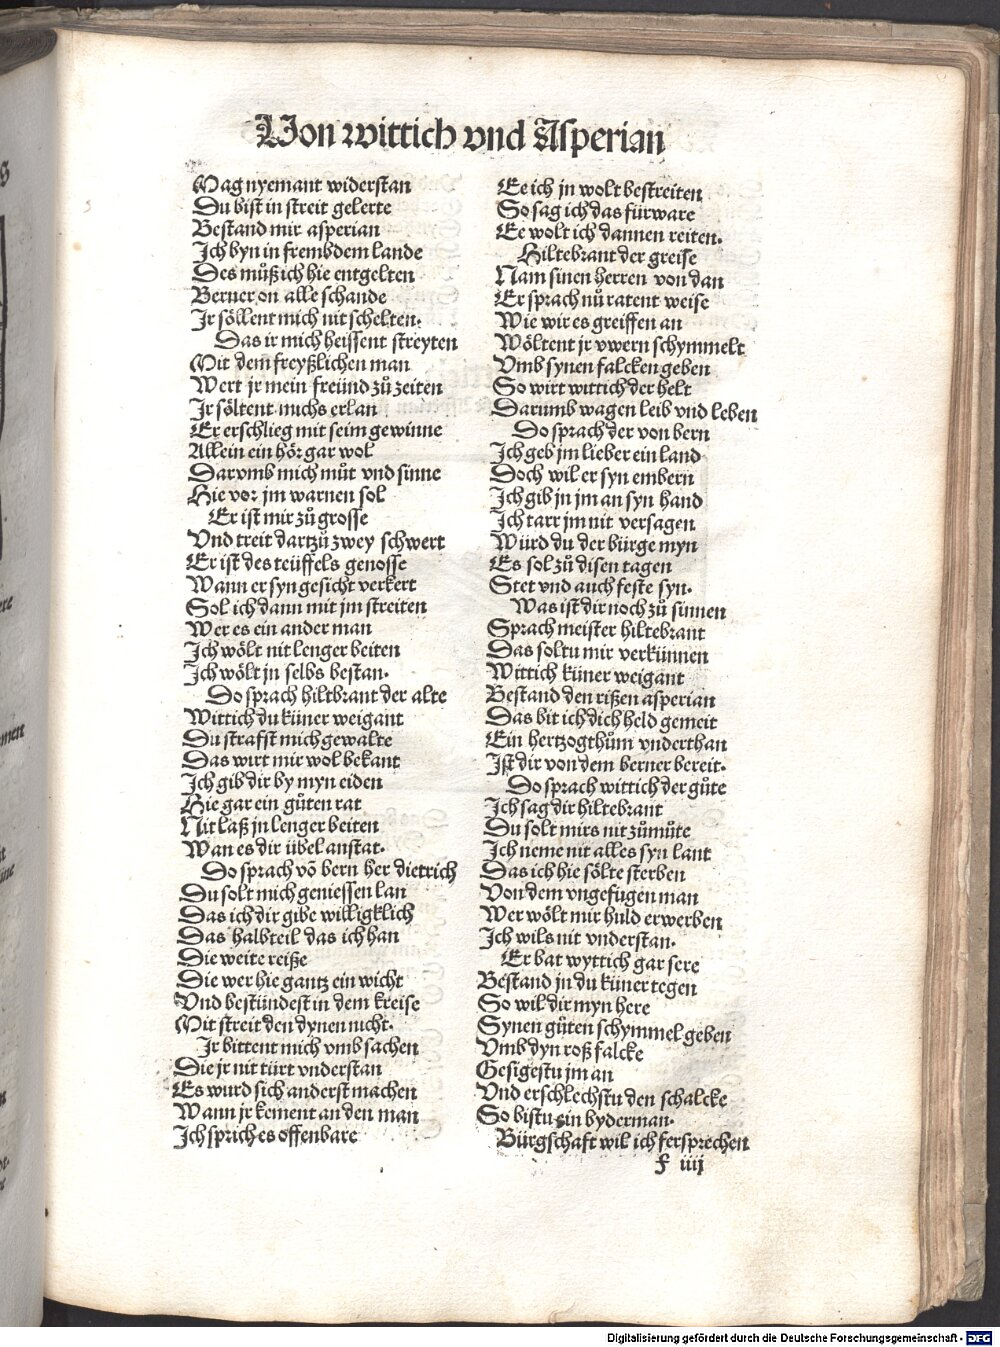 Von wittich vnd Asperian
Mag nyemant widerstan
Du bist in streit gelerte
Bestand mir asperian
Ich byn in frembdem lande
Des muͦß ich hie entgelten
Berner on alle schande
Ir soͤllent mich nit schelten.
Das ir mich heissent streyten
Mit dem freyßlichen man
Wert jr mein freünd zuͦ zeiten
Ir soͤltent michs erlan
Er erschlieg mit seim gewinne
Allein ein hoͤr gar wol
Darvmb mich muͦt vnd sinne
Hie vor jm warnen sol
Er ist mir zuͦ grosse
Vnd treit dartzuͦ zwey schwert
Er ist des teüffels genosse
Wann er syn gesicht verkert
Sol ich dann mit jm streiten
Wer es ein ander man
Ich woͤlt nit lenger beiten
Ich woͤlt jn selbs bestan.
Do sprach hiltbrant der alte
Wittich du küner weigant
Du strafst mich gewalte
Das wirt mir wol bekant
Ich gib dir by myn eiden
Hie gar ein guͦten rat
Nit laß jn lenger beiten
Wan es dir übel anstat.
Do sprach võ bern her dietrich
Du solt mich geniessen lan
Das ich dir gibe willigklich
Das halbteil das ich han
Die weite reiße
Die wer hie gantz ein wicht
Vnd bestündest in dem kreise
Mit streit den dynen nicht.
Ir bittent mich vmb sachen
Die jr nit türt vnderstan
Es wurd sich anderst machen
Wann jr kement an den man
Ich sprich es offenbare
Ee ich jn wolt bestreiten
So sag ich das fürware
Ee wolt ich dannen reiten.
Hiltebrant der greise
Nam sinen herren von dan
Er sprach nuͦ ratent weise
Wie wir es greiffen an
Woͤltent jr vwern schymmelt
Vmb synen falcken geben
So wirt wittich der helt
Darumb wagen leib vnd leben
Do sprach der von bern
Ich geb jm lieber ein land
Doch wil er syn embern
Ich gib jn jm an syn hand
Ich tarr jm nit versagen
Würd du der bürge myn
Es sol zuͦ disen tagen
Stet vnd auch feste syn.
Was ist dir noch zuͦ sinnen
Sprach meister hiltebrant
Das soltu mir verkünnen
Wittich küner weigant
Bestand den rißen asperian
Das bit ich dich held gemeit
Ein hertzogthuͦm vnderthan
Ist dir von dem berner bereit.
Do sprach wittich der guͦte
Ich sag dir hiltebrant
Du solt mirs nit zuͦmuͦte
Ich neme nit alles syn lant
Das ich hie soͤlte sterben
Von dem vngefugen man
Wer woͤlt mir huld erwerben
Ich wils nit vnderstan.
Er bat wyttich gar sere
Bestand jn du küner tegen
So wil dir myn here
Synen guͦten schymmel geben
Vmb dyn roß falcke
Gesigestu jm an
Vnd erschlechstu den schalcke
So bistu ein byderman.
Bürgschaft wil ich fersprechen
f iiij
Digitalisierung gefördert durch die Deutsche Forschungsgemeinschaft - DFG